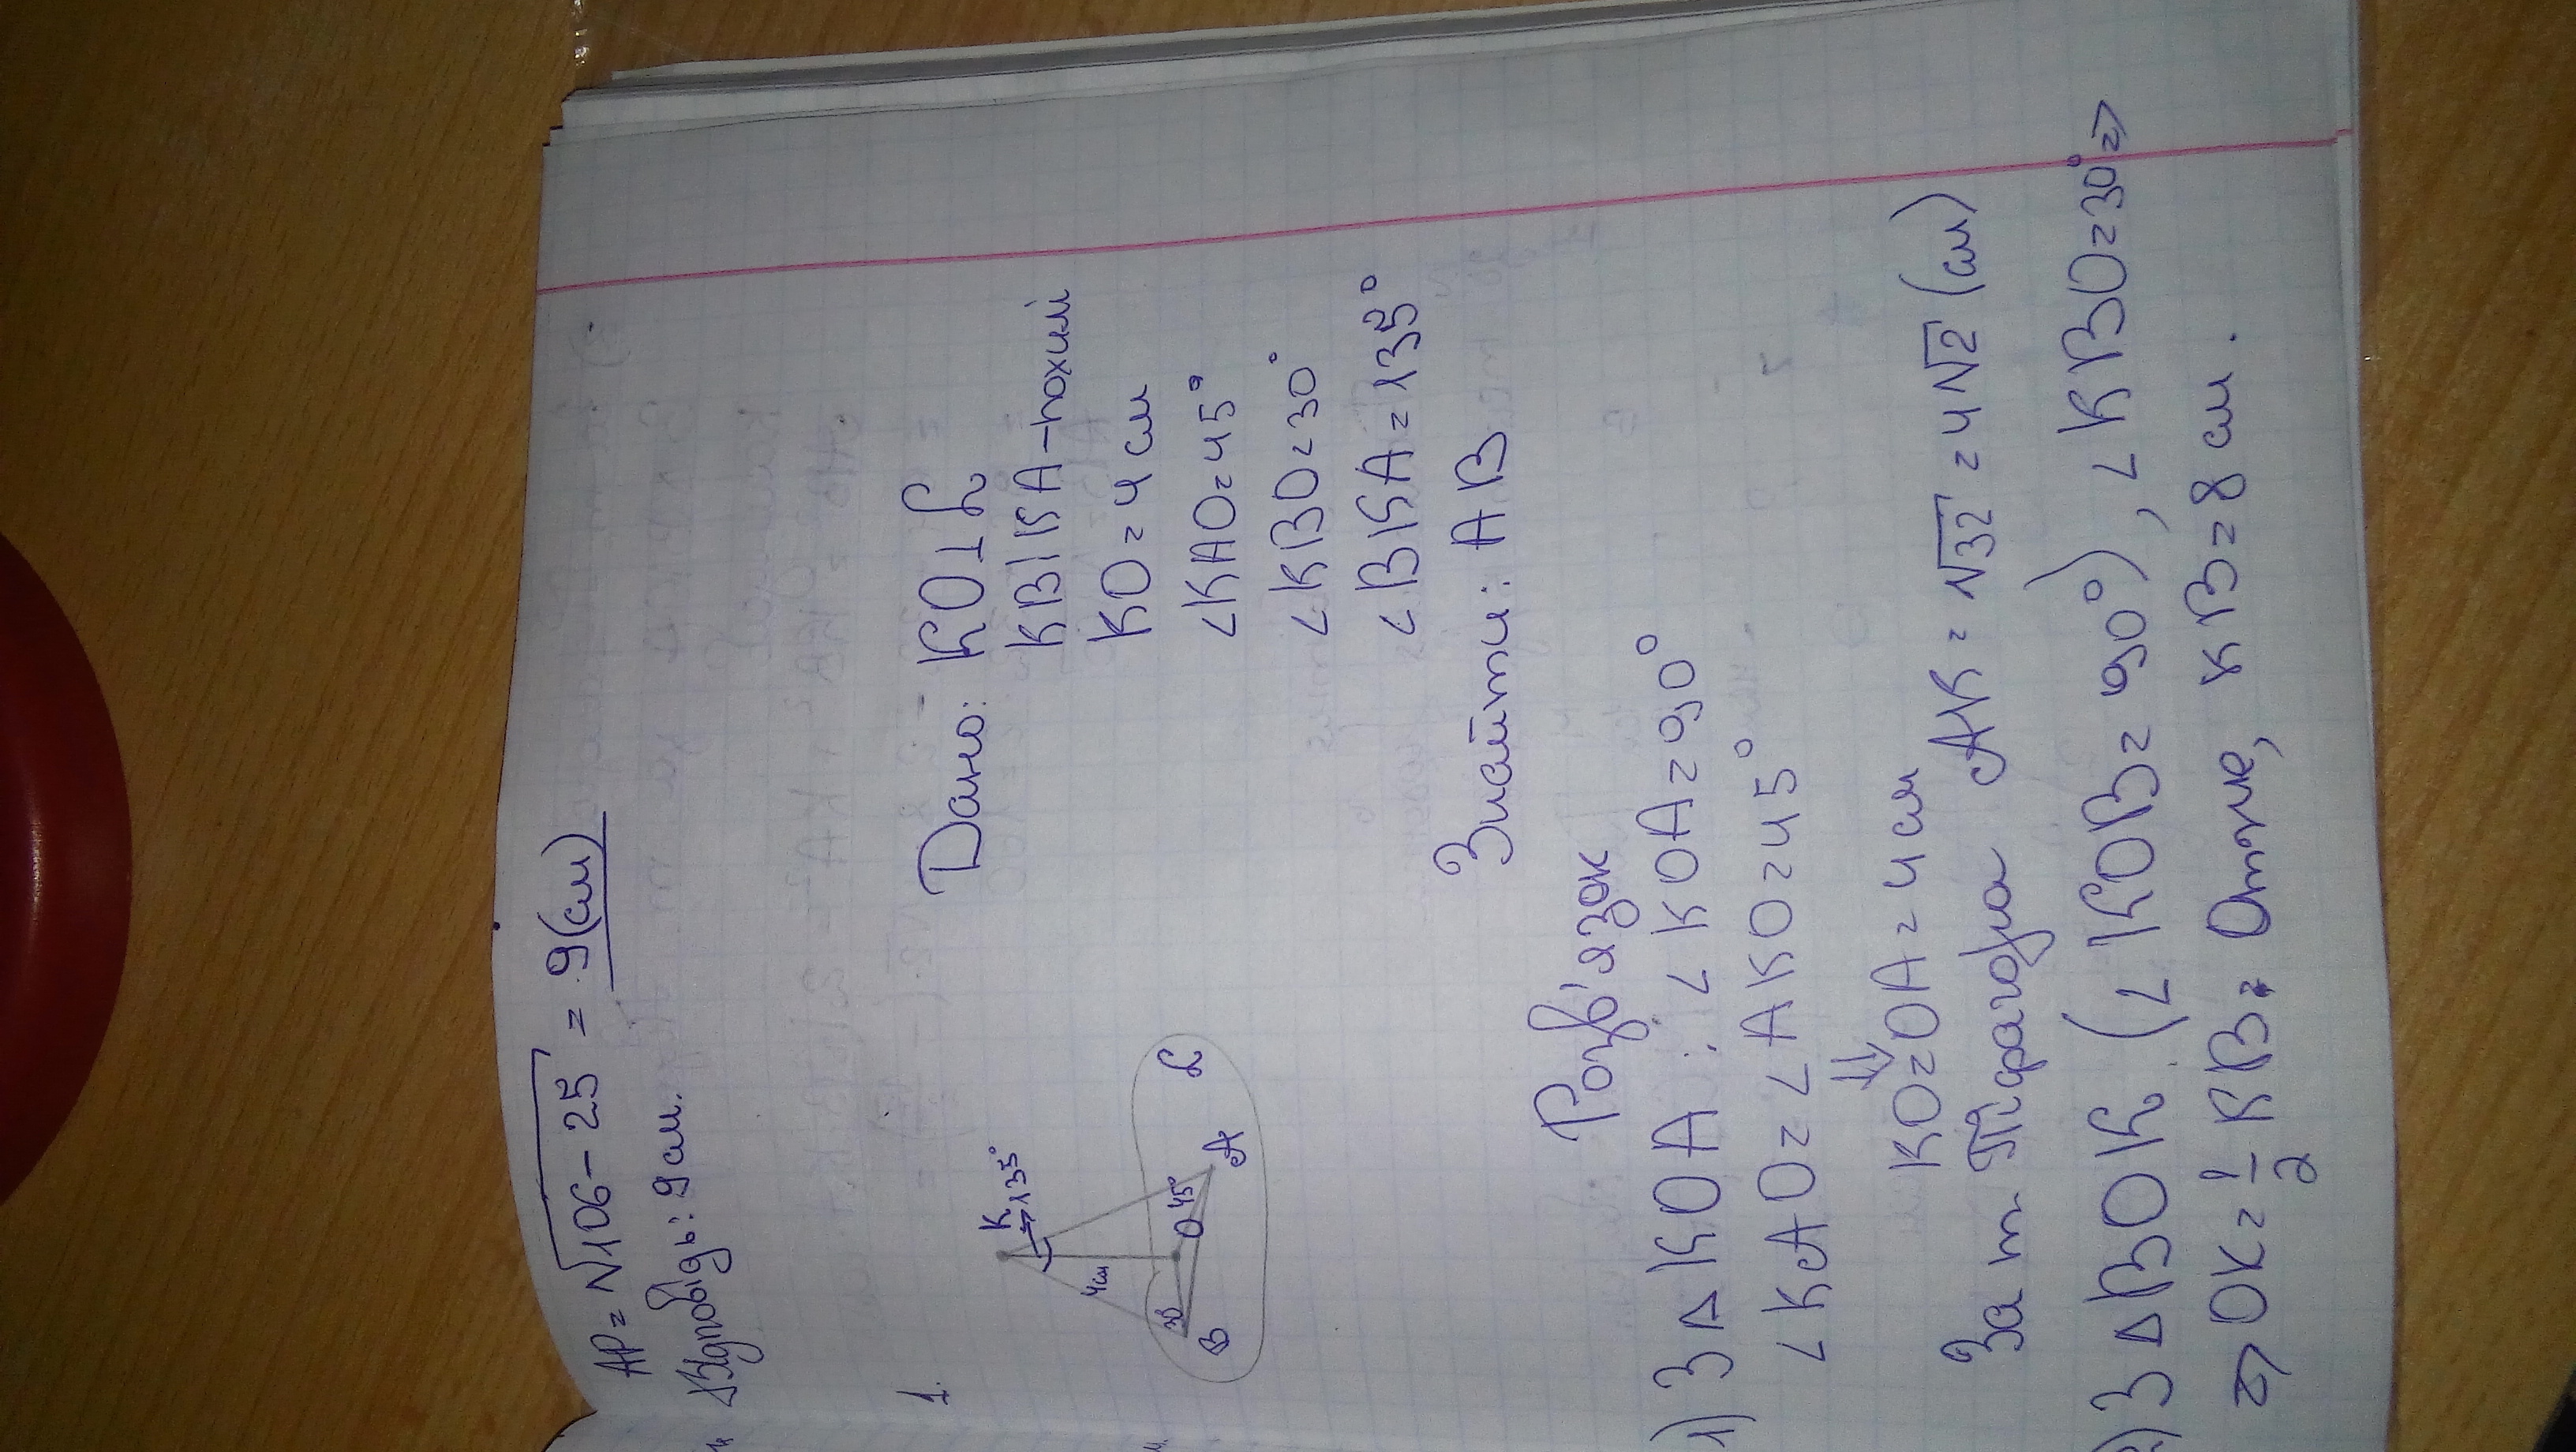 AP = √106 - 25 = 9(см)
Відповідь: 9 см.
1.
Дано: KO ⊥ α
KB і KA - похилі
KO = 4 см
∠KAO = 45°
∠KBO = 30°
∠BKA = 135°
Знайти: AB
K
135°
4см
30
O
45°
B
A
α
Розв'язок
1) З Δ KOA: ∠KOA = 90°
∠KAO = ∠AKO = 45°
⇓
KO = OA = 4 см
За т Піфагора AK = √32 = 4√2 (см)
2) З Δ BOK (∠KOB = 90°), ∠KBO = 30° ⇒
⇒ OK = 1/2 KB. Отже, KB = 8 см.